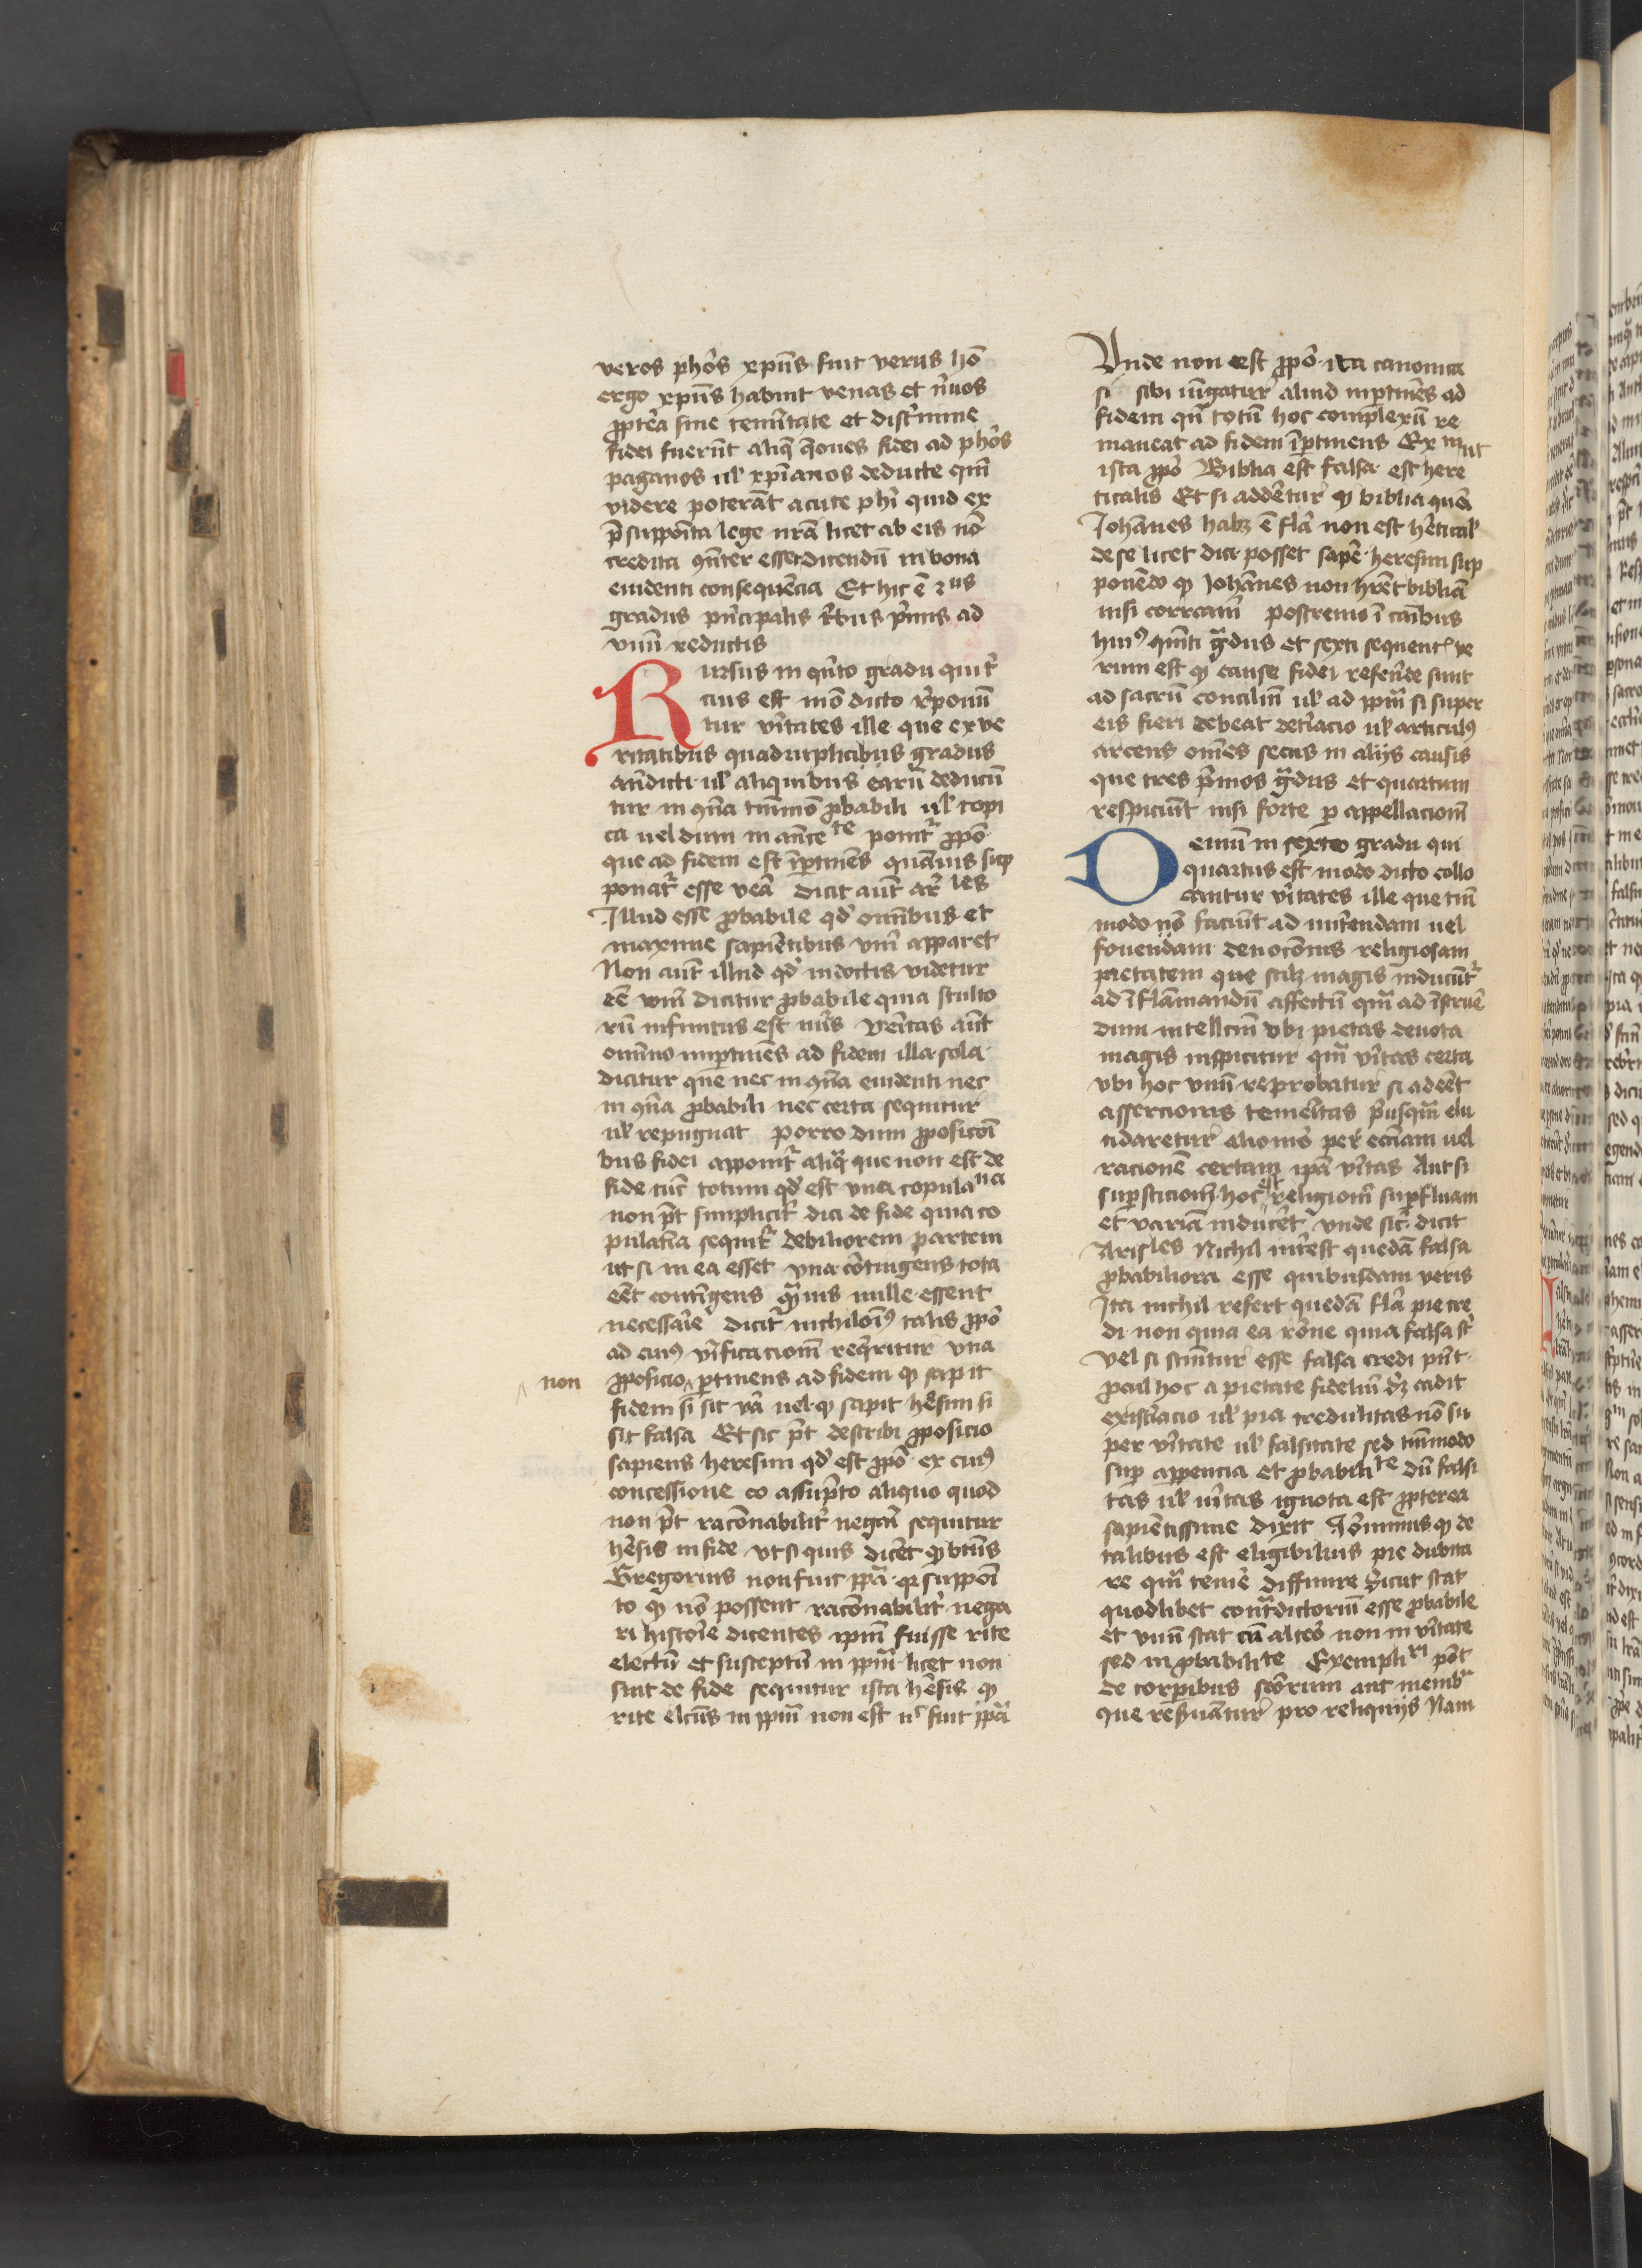 veros phōs xpūs fuit verus hō
ergo xpūs habuit venas et n̄uos
ꝓpt̄ea sine temītate et disc̄mine
fidei fuerūt aliq̄ q̄ones fidei ad phōs
paganos ul̄ xp̄ianos deducte qm̄
videre poterāt acute phī quid ex
p̄supposita lege nrā licet ab eis nō
credita ꝯn̄ter esset dicendū in bona
euidenti consequēcia Et hic ē 3us
gradus p̄ncipalis t̄bus p̄mis ad
vnū reductis
Rursus in qn̄to gradu qui t̄
cius est mō dicto r̄ponū
tur v̄itates ille que ex ve
ritatibus quadruplicibus gradus
an̄dicti ul̄ aliquibus earū deducū
tur in ꝯn̄a tm̄mō ꝓbabili ul̄ topi
ca uel dum in an̄cete ponit̄ ꝓpō
que ad fidem est īp̄tinēs quāuis sup
ponat̄ esse veā dicit aūt ar̄les
Illud esse ꝓbabile qd̄ omībus et
maxime sapiētibus vm̄ apparet
Non aūt illud qd̄ indoctis videtur
eē vm̄ dicitur ꝓbabile quia stulto
rū infinitus est nūs veritas aūt
omīno imp̄tinēs ad fidem illa sola
dicitur que nec in ꝯn̄a euidenti nec
in ꝯn̄a ꝓbabili nec certa sequitur
ul̄ repugnat porro dum ꝓposicōi
bus fidei apponit̄ aliq̄ que non est de
fide tūc totum qd̄ est vna copulatiua
non p̄t simplicit̄ dici de fide quia co
pulatīa sequit̄ debiliorem partem
ut si in ea esset vna cōtingens tota
eēt contīgens q̄uis mille essent
necessar̄ie dicit̄ nichilomī9 talis ꝓpō
ad cui9 v̄ificacionē req̄ritur vna
non ꝓposicio p̄tinens ad fidem ꝙ sapit
fidem si sit v̄a uel ꝙ sapit h̄esim si
sit falsa Et sic p̄t describi ꝓposicio
sapiens heresim qd̄ est ꝓpō ex cui9
concessione co assūpto aliquo quod
non p̄t racōnabilit̄ negar̄i sequitur
h̄esis in fide vt si quis dicēt ꝙ btūs
Gregorius non fuit ppā qꝛ supposi
to ꝙ nō possent racōnabilit̄ nega
ri histor̄ie dicentes ipm̄ fuisse rite
electū et susceptū in ppm̄ licet non
sint de fide sequitur ista h̄esis ꝙ
rite elcūs in ppm̄ non est ul̄ fuit ppā
Vnde non est ꝓpō ita canonica
si sibi iūgatur aliud inp̄tinēs ad
fidem qn̄ totū hoc complexū re
maneat ad fidem īp̄tinens Ex m ut
ista ꝓpō Biblia est falsa est here
ticalis Et si addētur ꝙ biblia quā
Johānes habꝫ ē fl̄a non est h̄etical̄
de se licet dici posset sapē heresim sup
ponēdo ꝙ Johānes non hr̄et bibliā
nisi correctam̄ postremo ī cāibus
hui9 qui̇nti g̃dus et sexti sequent̄ ve
rum est ꝙ cause fidei refer̄ende sunt
ad sacrū conciliū ul̄ ad ppm̄ si super
eis fieri debeat det̄iacio ul̄ articul9
arcens om̄es secus in alijs causis
que tres p̄mos g̃dus et quartum
respiciūt nisi forte p̄ appellacionē
Demū in sexto gradu qui
quartus est modo dicto collo
cantur v̄itates ille que tm̄
modo nō faciūt ad nutr̄iendam uel
fouendam deuocōnis religiosam
pietatem que scilꝫ magis inducūt̄
ad īflāmandū affectū qm̄ ad īstruē
dum intellcm̄ vbi pietas deuota
magis inspicitur qm̄ v̄itas certa
vbi hoc vnū reprobatur si adeēt
assercionis temeritas p̄usqm̄ elu
cidaretur aliomō per ecciam uel
racionē certam ip̄a v̄itas Aut si
sup̄sticionē hoc est religionē sup̄fluam
et variā inducēt vnde sic̄ dicit
Arisles Nichil int̄est quedā falsa
ꝓbabiliora esse quibusdam veris
Ita nichil refert quedā fl̄a pie cre
di non quia ea rōne quia falsa st̄
vel si sciuntur esse falsa credi pn̄t
ꝓcul hoc a pietate fideliū dꝫ cadit
existīacio ul̄ pia credulitas nō su
per v̄itate ul̄ falsitate sed tm̄modo
sup̄ apparencia et ꝓbabilite dū falsi
tas ul̄ v̄itas ignota est ꝓpterea
sapiētissime dixit Jeronimus ꝙ de
talibus est eligibilius pie dubita
re qm̄ tem̄e diffinire Sicut stat
quodlibet cont̄dictoriū esse ꝓbabile
et vnū stat cū alt̄eo non in v̄itate
sed in ꝓbabilite Exempli ri pōt
de corp̄ibus sc̄orum aut membr̄
que res̄uātur pro reliquijs Nam